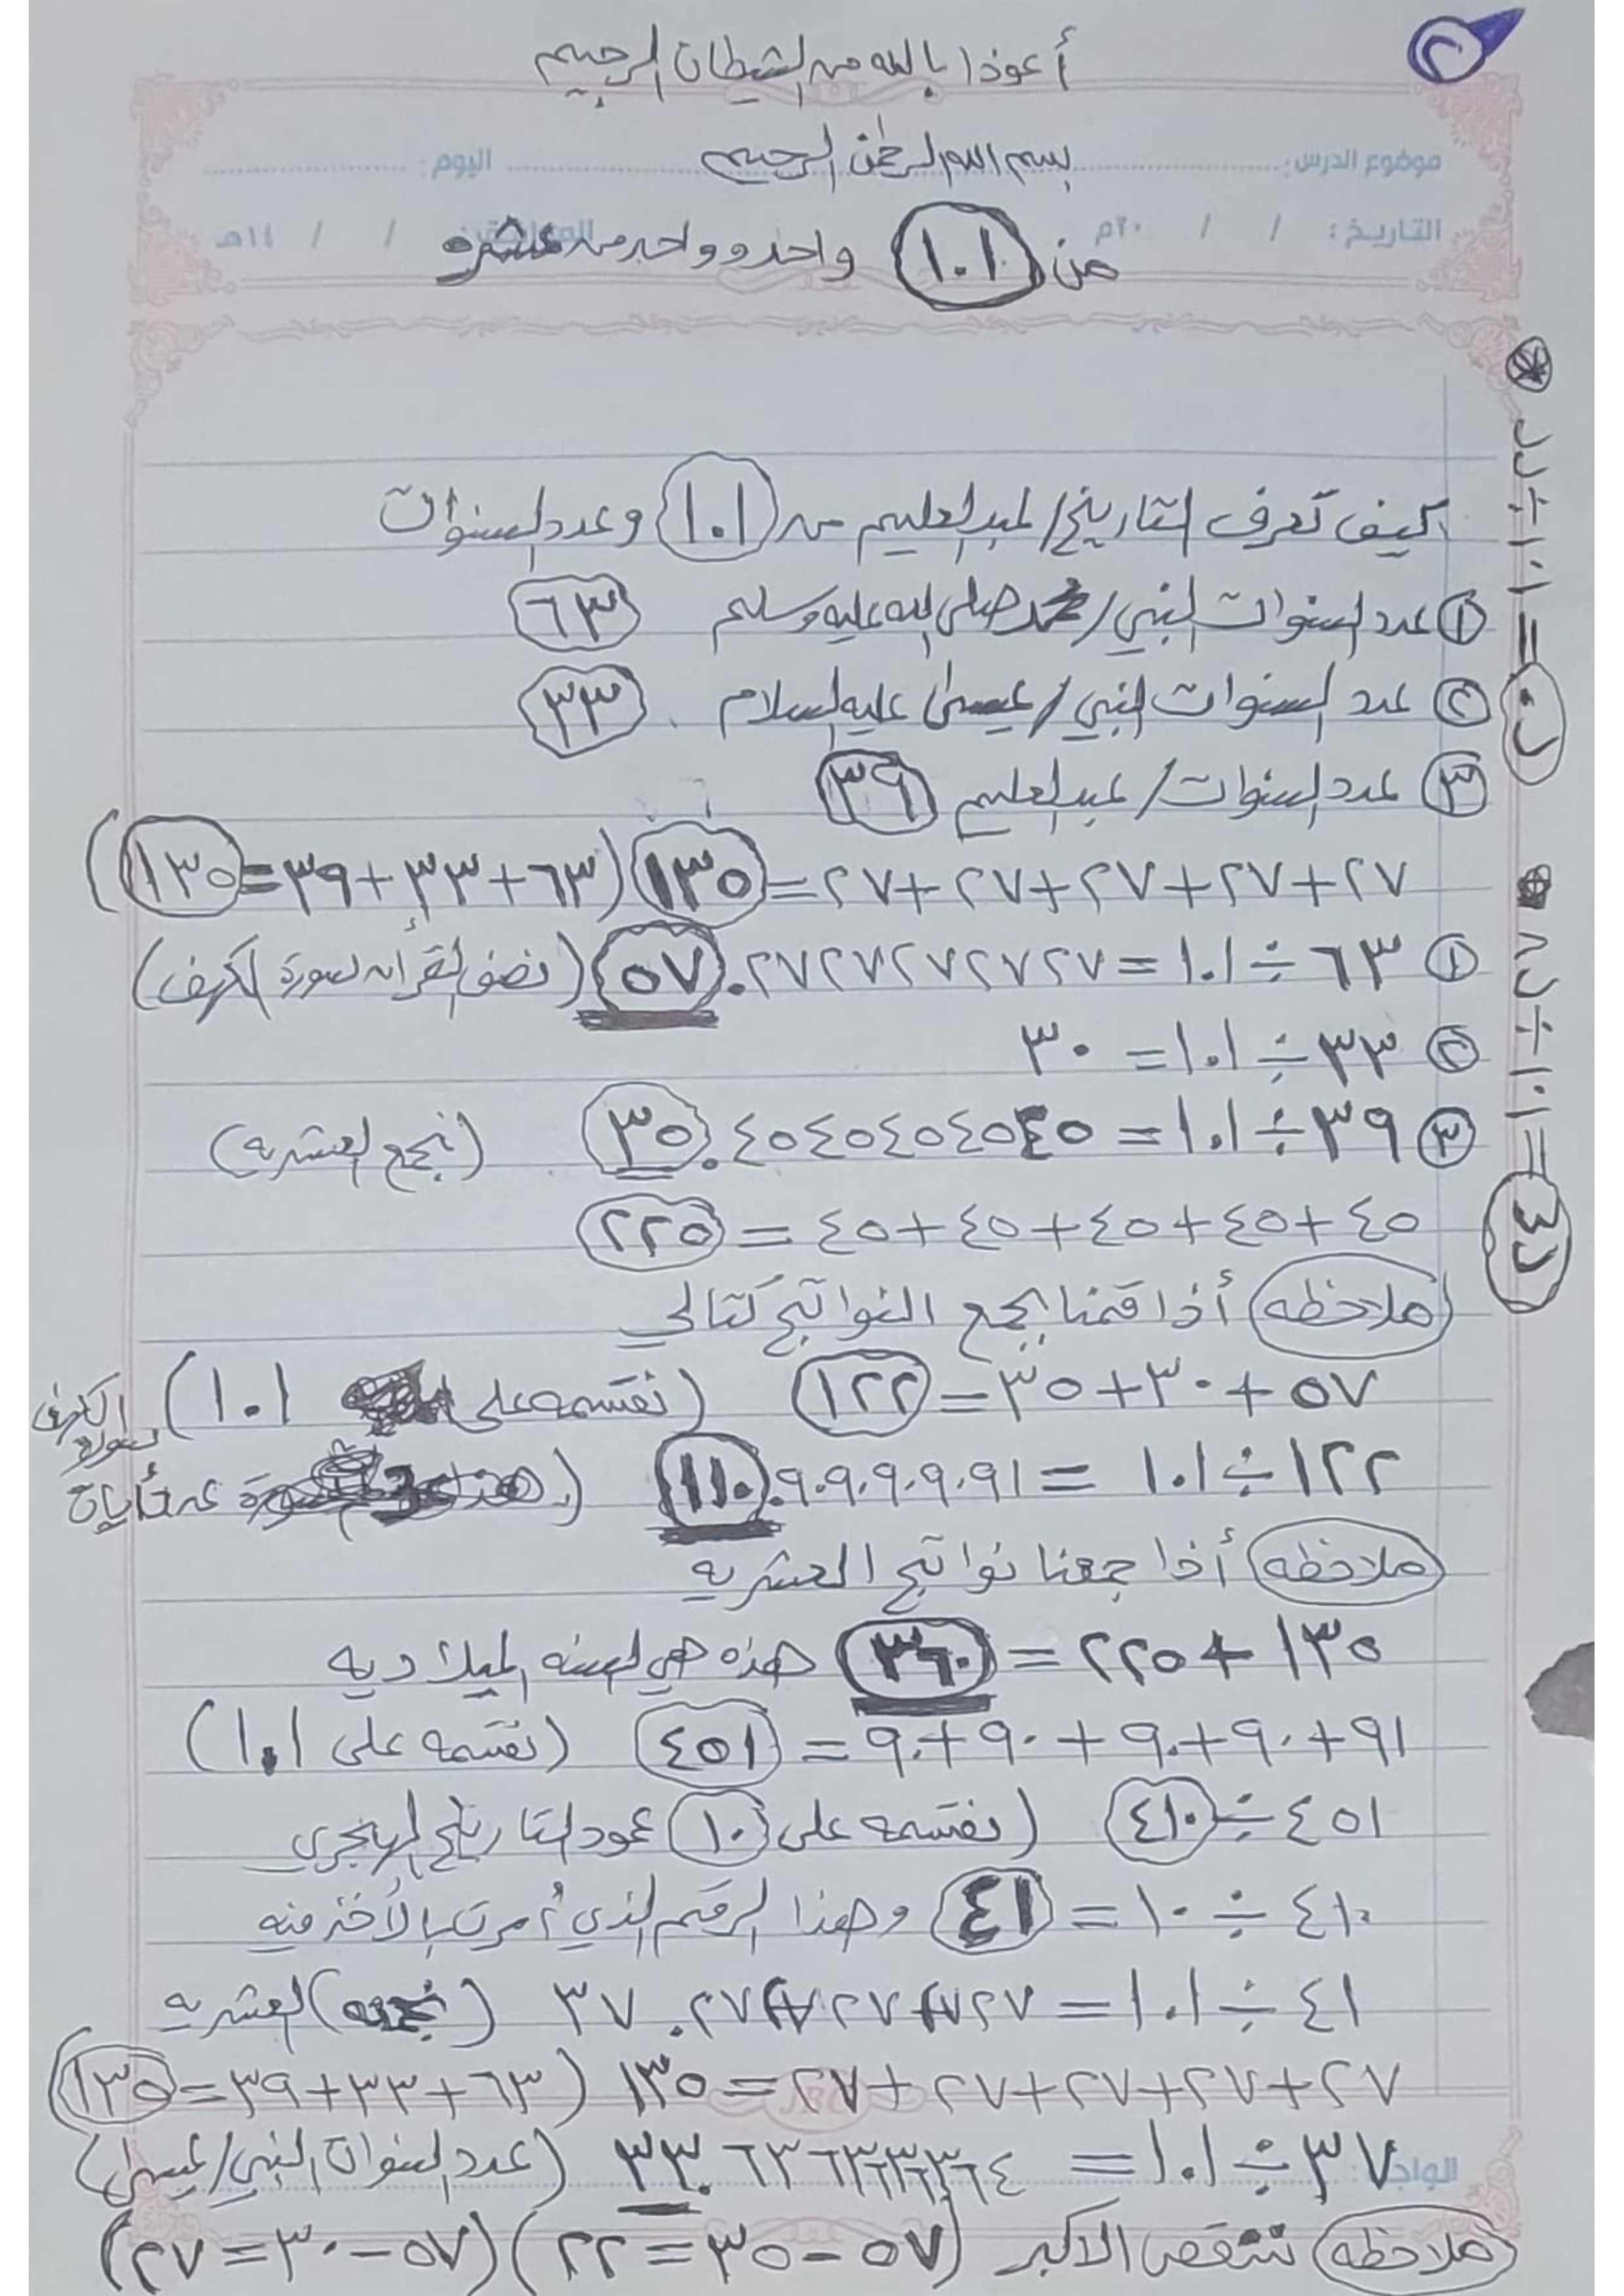 ٢
أعوذا بالله من الشيطان الرجيم
بسم الله الرحمٰن الرحيم
موضوع الدرس: اليوم:
التاريخ: / / ٢٠م / / ١٤هـ
من ١.١ واحد وواحد من عشره
كيف تعرف التاريخ/عبدالعليم من ١.١ وعدد السنوات
١ عدد السنوات النبي/محمد صلى الله عليه وسلم ٦٣
٢ عدد السنوات النبي/عيسىٰ عليه السلام ٣٣
٣ عدد السنوات/عبدالعليم ٣٩
٢٧+٢٧+٢٧+٢٧+٢٧=١٣٥ (٦٣+٣٣+٣٩=١٣٥)
١ ٦٣÷١.١=٥٧.٢٧٢٧٢٧٢٧٢٧ (نصف القرأن سورة الكهف)
٢ ٣٣÷١.١=٣٠
٣ ٣٩÷١.١=٣٥.٤٥٤٥٤٥٤٥٤٥ (نجمع العشريه)
٤٥+٤٥+٤٥+٤٥+٤٥=٢٢٥
ملاحظه أذا قمنا بجمع النواتج كتالي
٥٧+٣٠+٣٥=١٢٢ (نقسمه على ١.١)
١٢٢÷١.١=١١٠.٩٠٩٠٩٠٩٠٩١ (هذا عدد أيات سورة الكهف
ملاحظه أذا جمعنا نواتج العشريه
١٣٥+٢٢٥=٣٦٠ هذه هي السنه الميلاديه
٩١+٩٠+٩٠+٩٠+٩٠=٤٥١ (نقسمه على ١.١)
٤٥١÷٤١٠ (نقسمه على ١٠ عمود التاريخ الهجري
٤١٠÷١٠=٤١ وهذا الرقم الذي أمرت بالأخذ منه
٤١÷١.١=٣٧.٢٧٢٧٢٧٢٧٢٧ (نجمع) العشريه
٢٧+٢٧+٢٧+٢٧+٢٧=١٣٥ (٦٣+٣٣+٣٩=١٣٥)
الواجب:
٣٧÷١.١=٣٣.٦٣٦٣٦٣٦٣٦٤ (عدد السنوات النبي/عيسىٰ)
ملاحظه ننقص الاكبر (٥٧-٣٥=٢٢) (٥٧-٣٠=٢٧)